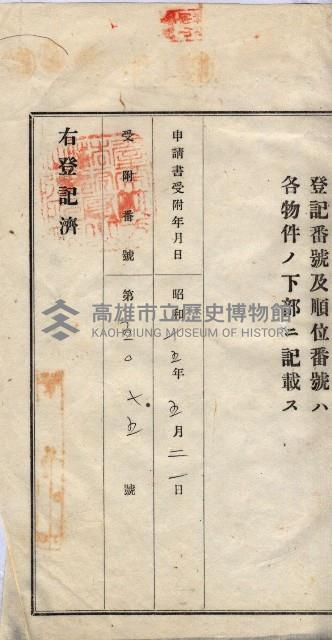 登記番號及順位番號ハ
各物件ノ下部ニ記載ス
申請書受附年月日
昭和十五年五月二一日
受附番號
第五〇七五號
右登記濟
高雄市立歷史博物館
KAOHSIUNG MUSEUM OF HISTORY